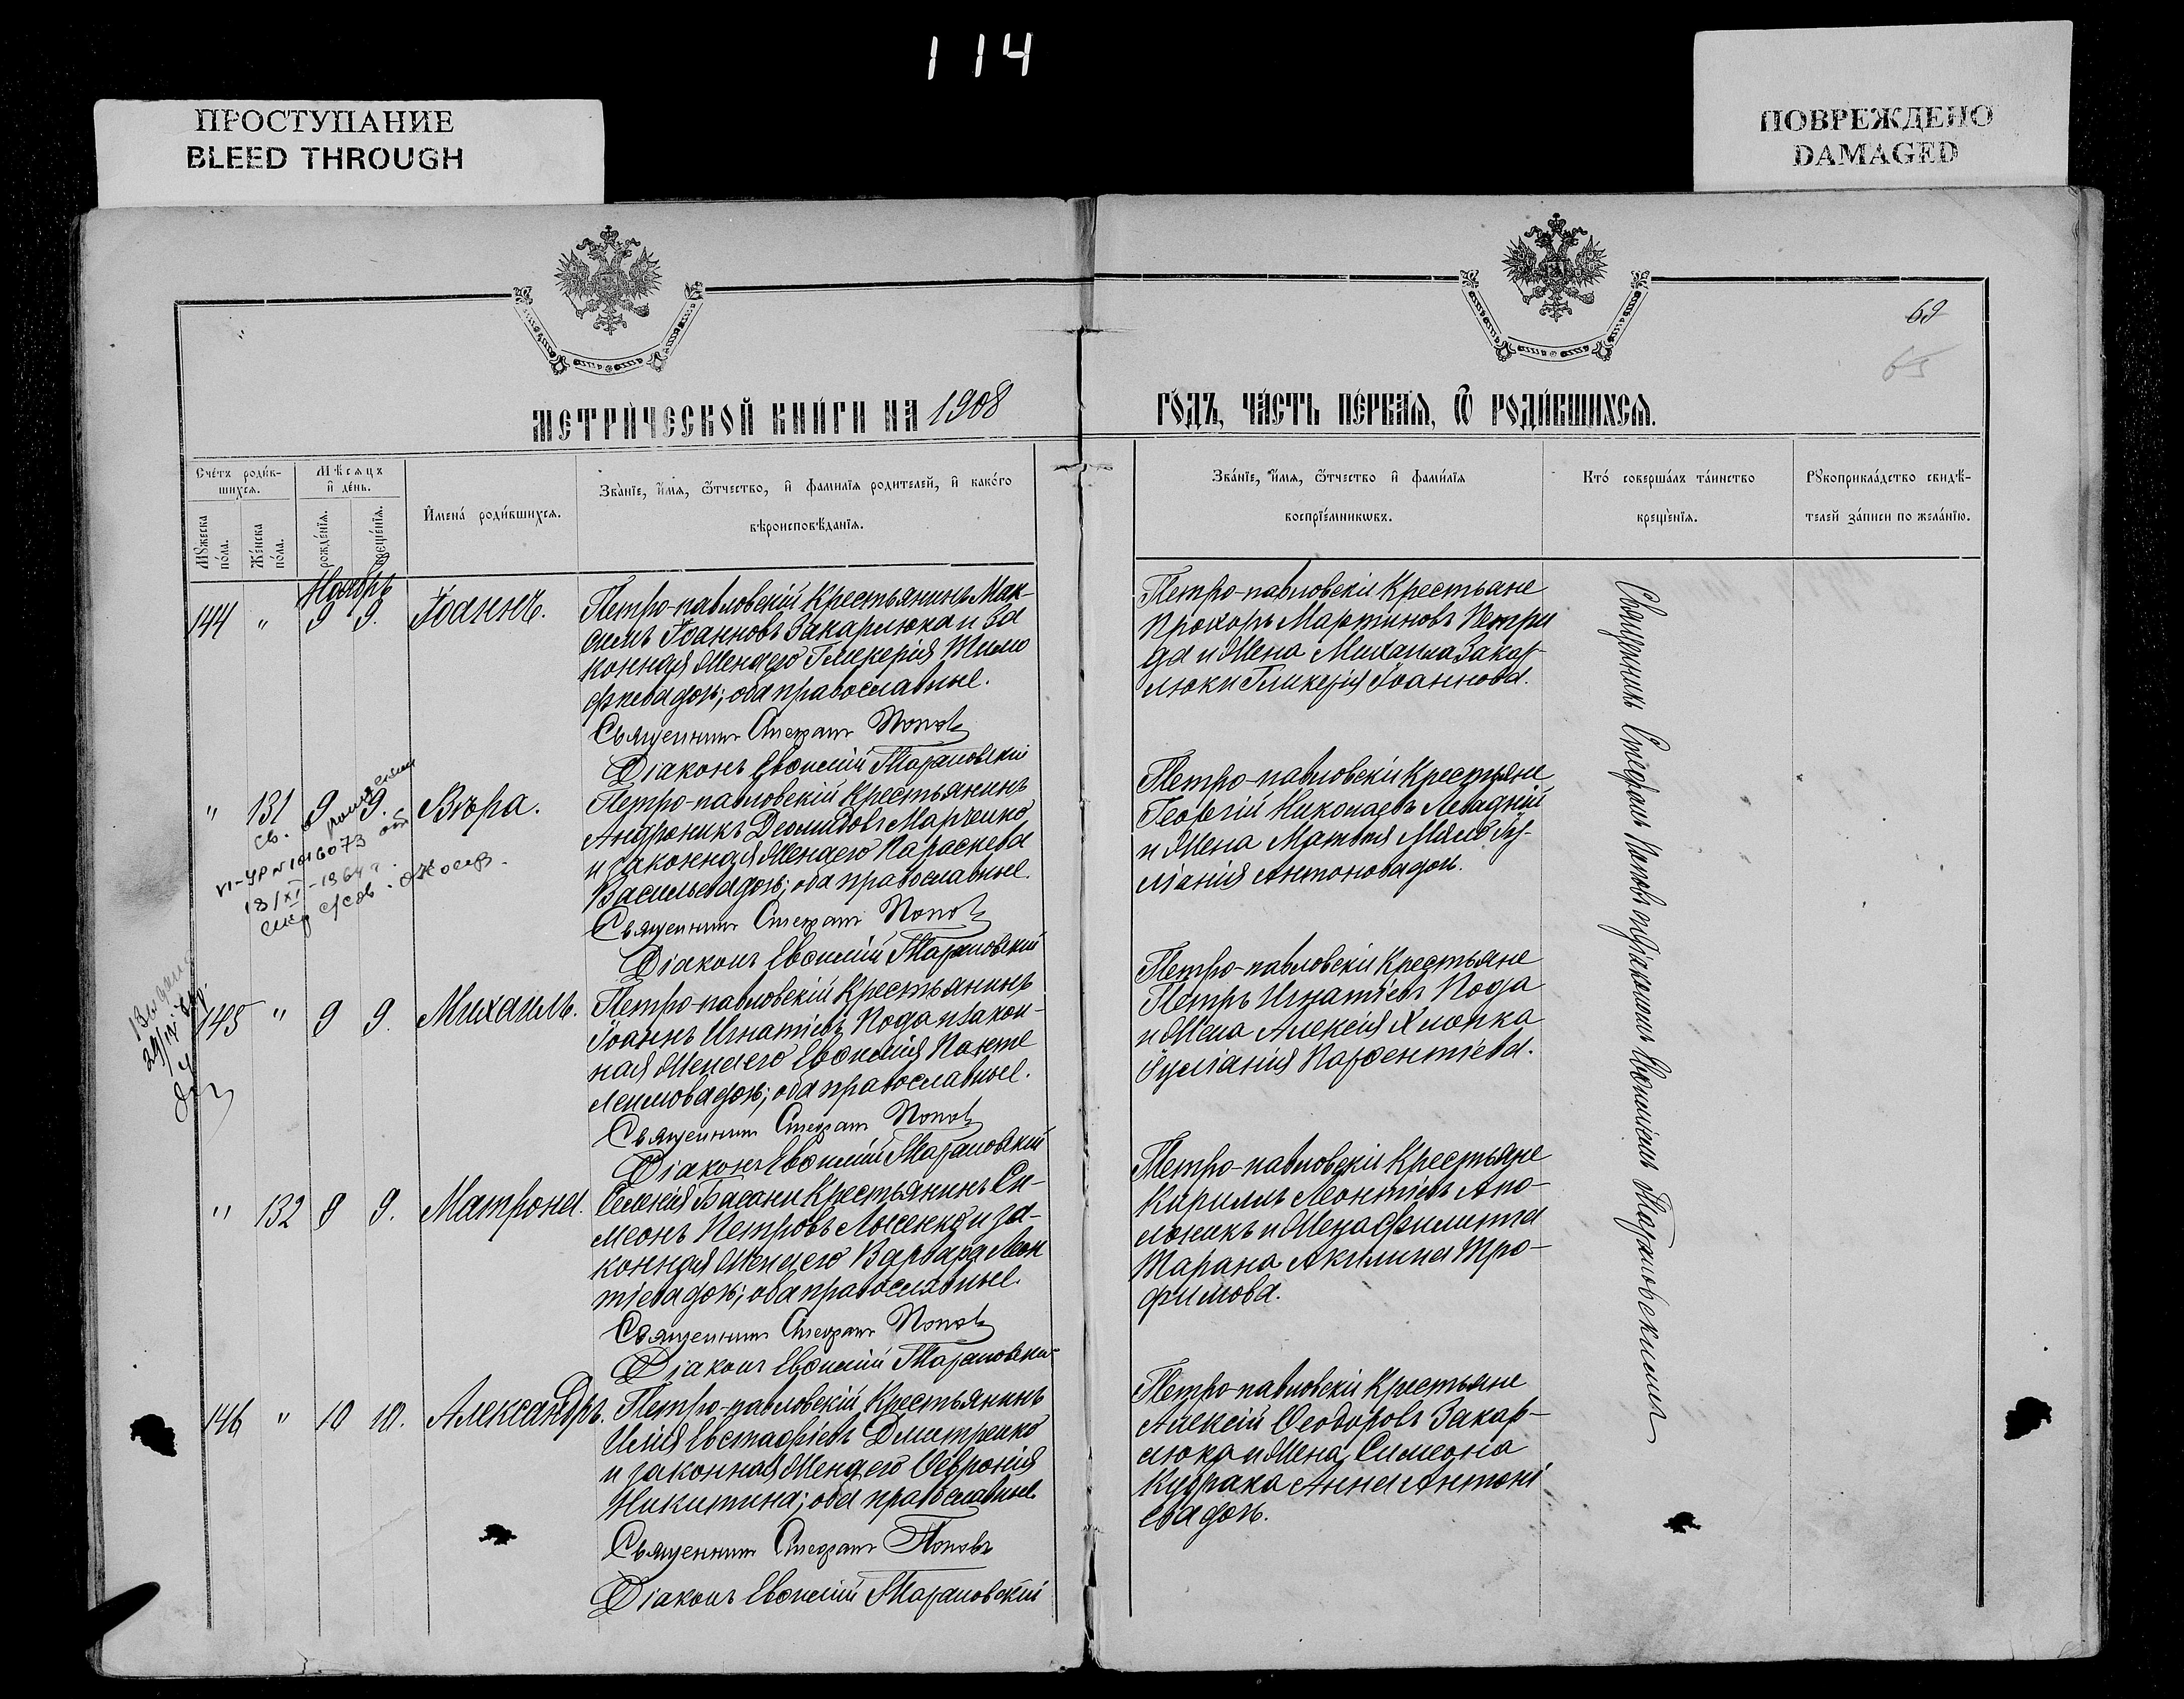 114
ПРОСТУПАНИЕ
BLEED THROUGH
ПОВРЕЖДЕНО
DAMAGED
69
65
МЕТРИ́ЧЕСКОЙ КНИ́ГИ НА 1908
ГО́ДЪ, ЧА́СТЬ ПЕ́РВАѦ, Ѽ РОДИ́ВШИХСѦ.
Сче́тъ роди́в-
шихсѧ.
Мꙋ́жеска по́ла.
Же́нска по́ла.
Мѣ́сѧцъ
и҆ де́нь.
рожде́нїѧ.
креще́нїѧ.
И҆мена̀ роди́вшихсѧ.
Зва́нїе, и҆́мѧ, ѻ҆́тчество, и҆ фами́лїѧ роди́телей, и҆ како́гѡ
вѣроисповѣ́данїѧ.
Зва́нїе, и҆́мѧ, ѻ҆́тчество и҆ фами́лїѧ
воспрїе́мникѡвъ.
Кто̀ соверша́лъ та́инство
креще́нїѧ.
Рꙋкоприкла́дство свидѣ́-
телей за́писи по жела́нїю.
Ноябрь
144 " 9 9. Іоаннъ.
Петро-павловскій Крестьянинъ Мак-
симъ Іоанновъ Закарлюка и за
конная жена его Гликерія Тимо
феева дочь; оба православные.
Священник Стефан Попов
Діаконъ Евѳимій Тарановскій
Петро-павловскіи Крестьяне
Прохоръ Мартиновъ Петри
да и жена Михаила Закар-
люки Гликерія Іоаннова.
" 131 9 9. Вѣра.
Св. о рождении
VI-УР № 1016073 от
18/XI-1964 г.
Петро-павловскій Крестьянинъ
Андроникъ Деомидовъ Марченко
и законная жена его Параскева
Васильева дочь; оба православные.
Священник Стефан Попов
Діаконъ Евѳимій Тарановскій
Петро-павловскіи Крестьяне
Георгій Николаевъ Левадній
и жена Матвея Мяло Іу-
ліанія Антонова доч.
145 " 9 9. Михаилъ.
Петро-павловскій Крестьянинъ
Іоаннъ Игнатіевъ Пода и закон-
ная жена его Евѳимія Панте
леимова дочь; оба православные.
Священник Стефан Попов
Діаконъ Евѳимій Тарановскій
Петро-павловскіи Крестьяне
Петръ Игнатіевъ Пода
и жена Алексія Хлопка
Іуліанія Парѳентіева.
" 132 8 9. Матрона.
Селенія Басани Крестьянинъ Си-
меонъ Петровъ Лысенко и за-
конная жена его Варвара Леон
тіева дочь; оба православные.
Священник Стефан Попов
Діаконъ Евѳимій Тарановскій
Петро-павловскіи Крестьяне
Кириллъ Леонтіевъ Апо-
лоникъ и жена Филиппа
Тарана Акилина Тро-
фимова.
146 " 10 10. Александръ.
Петро-павловскій Крестьянинъ
Илія Евстафіевъ Дмитренко
и законная жена его Ѳевронія
Никитина; оба православные.
Священник Стефан Поповъ
Діаконъ Евѳимій Тарановскій
Петро-павловскіи Крестьяне
Алексій Ѳеодоровъ Закар-
люка и жена Симеона
Кудрака Анна Антоні
ева дочь.
Священникъ Стефанъ Поповъ съ діакономъ Евѳиміемъ Тарановскимъ